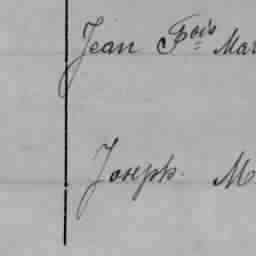 Jean Fois Mar
Joseph. M